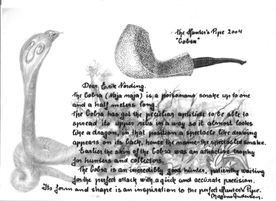 The Hunter's Pipe 2004
"Cobra"
Dear Erik Nording.
The Cobra (Naja naja) is a poisonous snake up to one
and a half meters long.
The Cobra has got the peculiar ability to be able to
spread its upper ribs in a way so it almost looks
like a dragon, in that position a spectacle like drawing
appears on its back, hence the name: the spectacled snake.
Earlier the skin of the Cobra was an attractive trophy
for hunters and collectors.
The cobra is an incredibly good hunter, patiently waiting
for the perfect attack with a quick and accurate precision.
Its form and shape is an inspiration to the perfect Hunters Pipe.